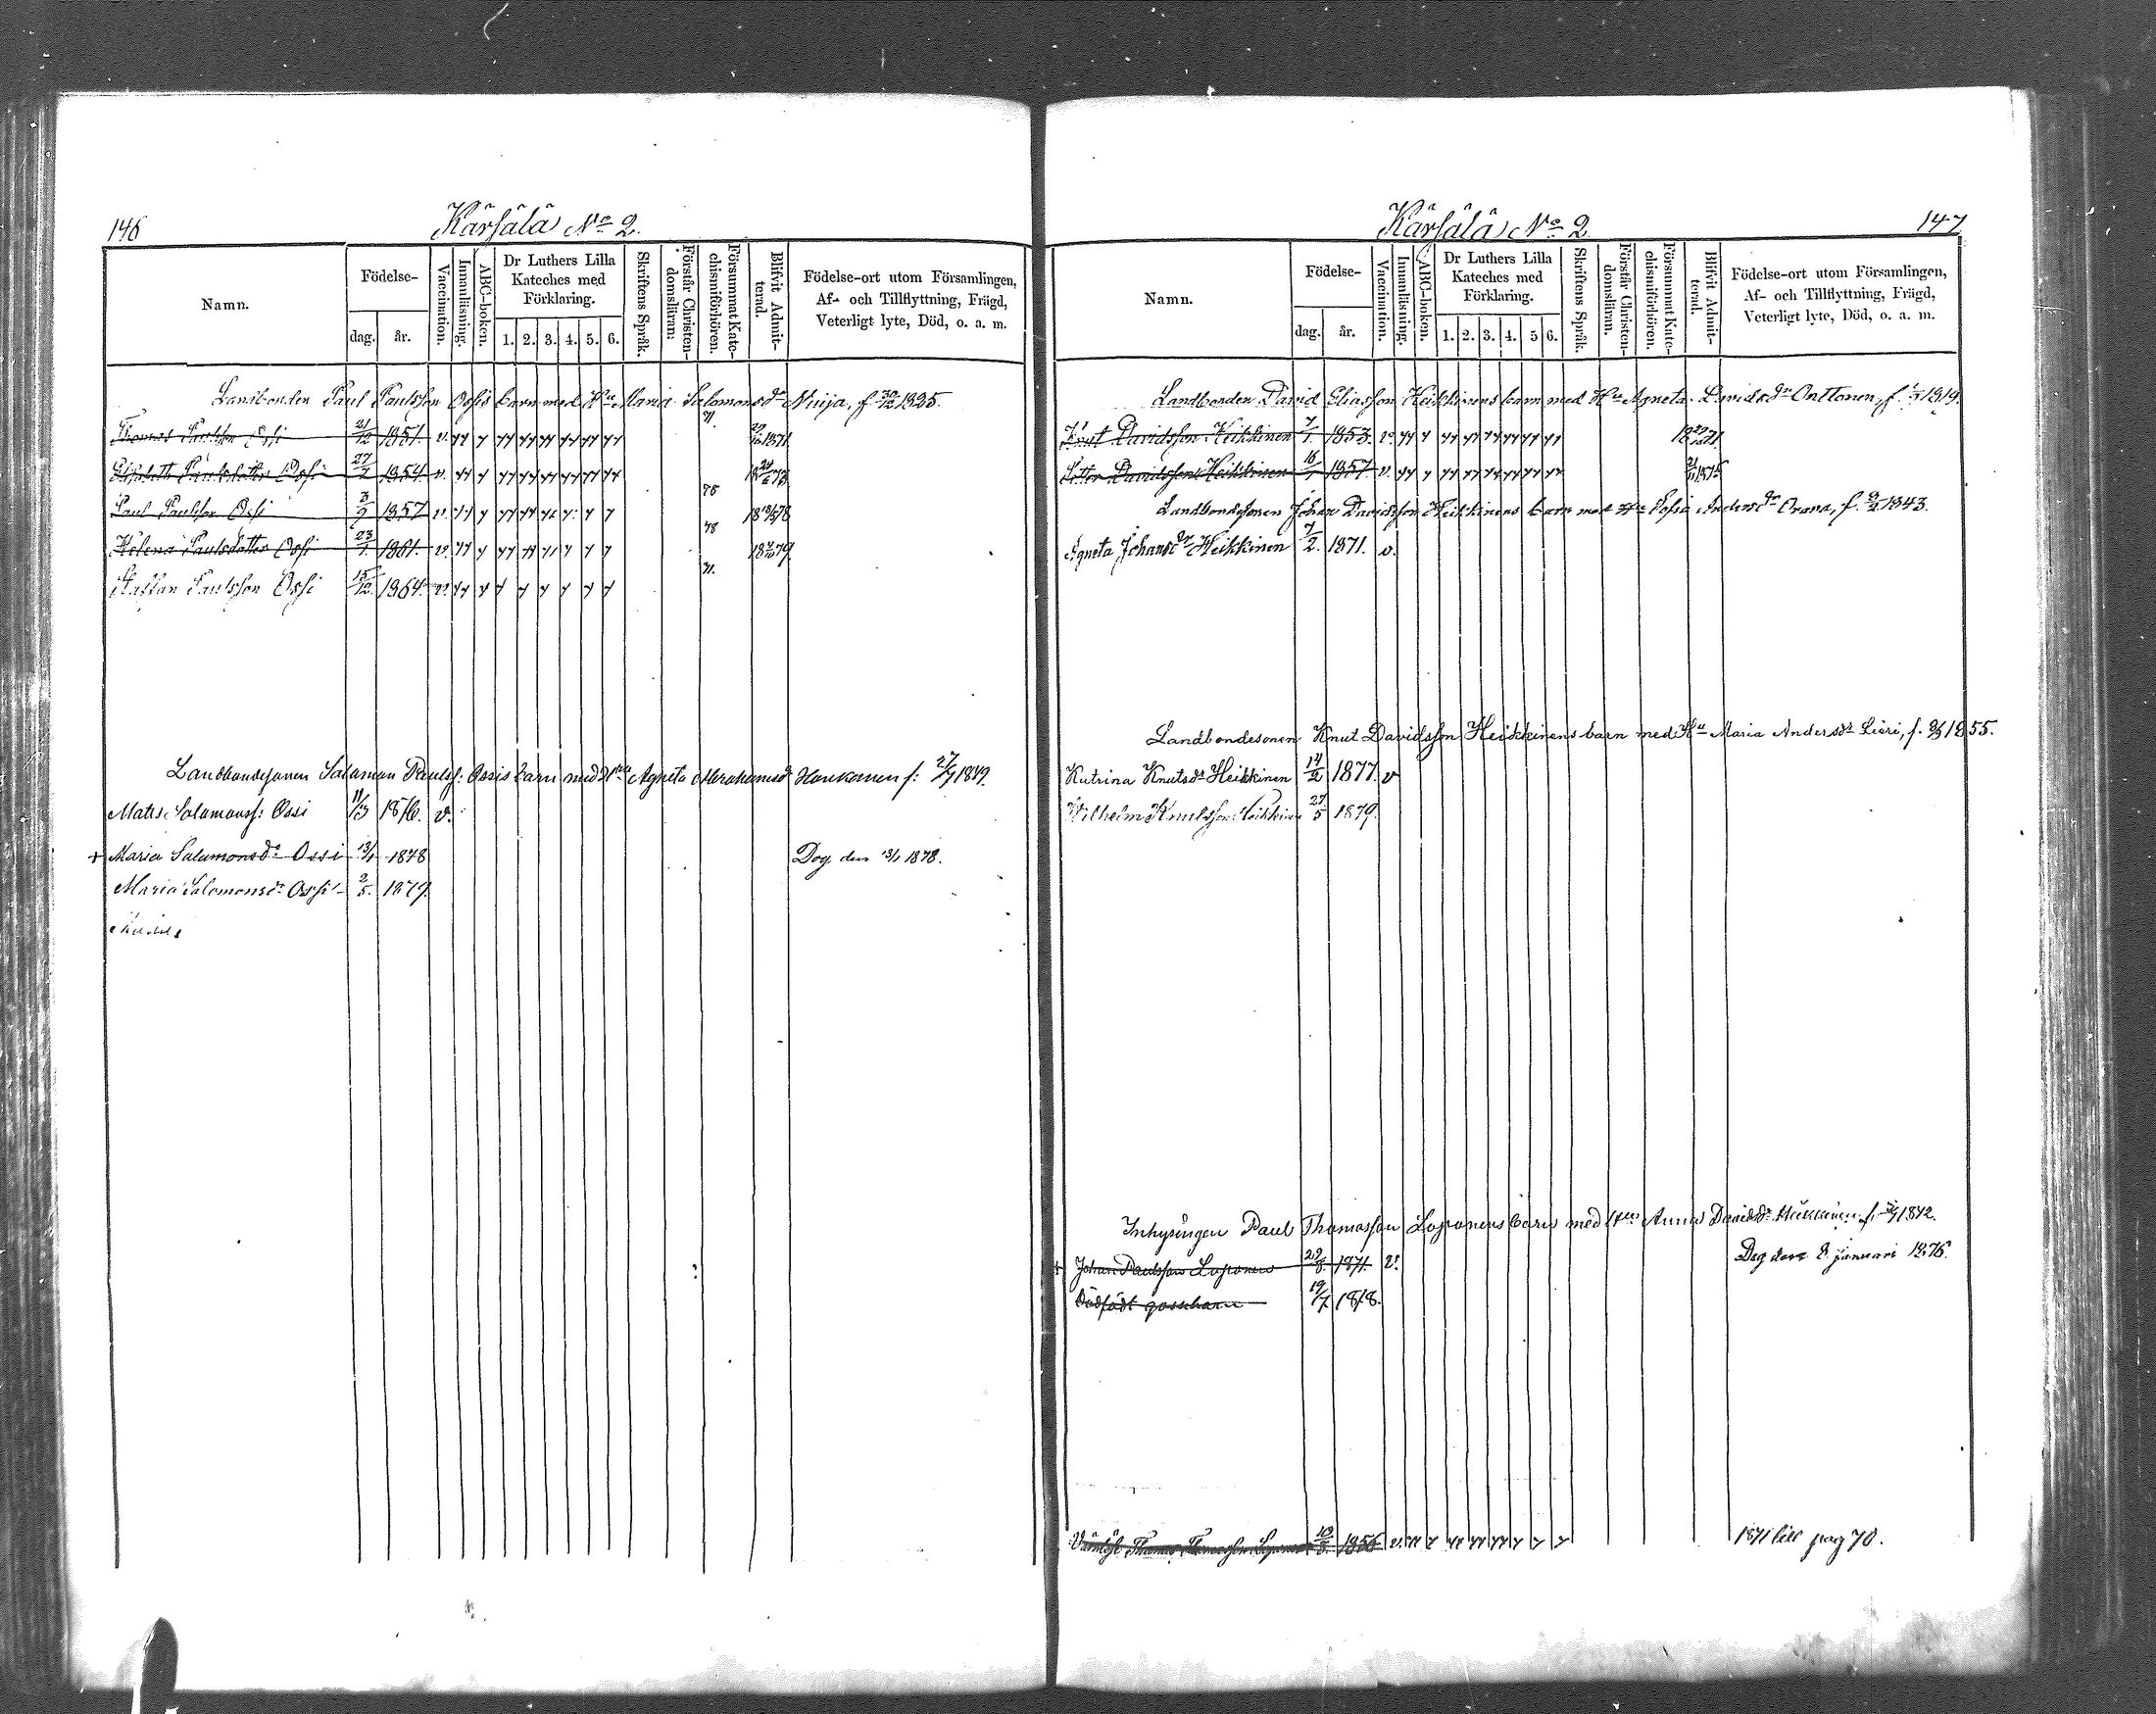 146
Kärsälä No 2.
Namn.
Födelse-
dag.
år.
Vaccination.
Innanläsning.
ABC-boken.
Dr Luthers Lilla
Kateches med
Förklaring.
1. 2. 3. 4. 5. 6.
Skriftens Språk.
Förstår Christen-
domsläran:
Försummat Kate-
chismiförhören.
Blifvit Admit-
terad.
Födelse-ort utom Församlingen,
Af- och Tillflyttning, Frägd,
Veterligt lyte, Död, o. a. m.
Landbonden Paul Paulsson Ossis barn med Hu Maria Salomonsdr Nuija, f. 30/12 1825.
Thomas Paulsson Ossi 21/12 1851. v. 71. 29/10 1871
Elisabeth Paulsdotter Ossi 27/2 1854 v.
Paul Paulsson Ossi 3/9 1857 v. 75
Helena Paulsdotter Ossi 23/1 1861. v. 78
Staffan Paulsson Ossi 15/12 1864. v. 71.
Landbondesonen Salomon Paulss: Ossis barn med Hu Agneta Abrahamsdr Honkanen f: 27/7 1849.
Matts Salomonss: Ossi 11/3 1876. v.
+ Maria Salomonsdr Ossi 13/1 1878 Dog den 13/1 1878.
Maria Salomonsdr Ossi 2/5. 1879.
147
Kärsälä No 2.
Namn.
Födelse-
dag.
år.
Vaccination.
Innanläsning.
ABC-boken.
Dr Luthers Lilla
Kateches med
Förklaring.
1. 2. 3. 4. 5 6.
Skriftens Språk.
Förstår Christen-
domsläran.
Försummat Kate-
chismiförhören.
Blifvit Admit-
terad.
Födelse-ort utom Församlingen,
Af- och Tillflyttning, Frägd,
Veterligt lyte, Död, o. a. m.
Landbonden David Eliasson Heikkinens barn med Hu Agneta Davidsdr Onttonen, f. 1819.
Knut Davidsson Heikkinen 7/1 1853. v.
Petter Davidsson Heikkinen 16/1 1857. v.
Landbondesonen Johan Davidsson Heikkinens barn med Hu Sofia Andersdr Orava, f. 1843.
Agneta Johansdr Heikkinen 7/2. 1871. v.
Landbondesonen Knut Davidsson Heikkinens barn med Hu Maria Andersdr Lieri, f. 1855.
Katrina Knutsdr Heikkinen 14/2 1877. v
Wilhelm Knutsson Heikkinen 27/5 1879.
Inhysingen Paul Thomasson Loponens barn med Hu Anna Davidsdr Heikkinen f. 1842.
+ Johan Paulsson Loponen 29/8. 1871. v. Dog den 8 januari 1876.
Dödfödt gossebarn 19/7 1878.
Värnlöse Thomas Thomasson Loponen 10/3. 1856 v. 1871 till pag 70.